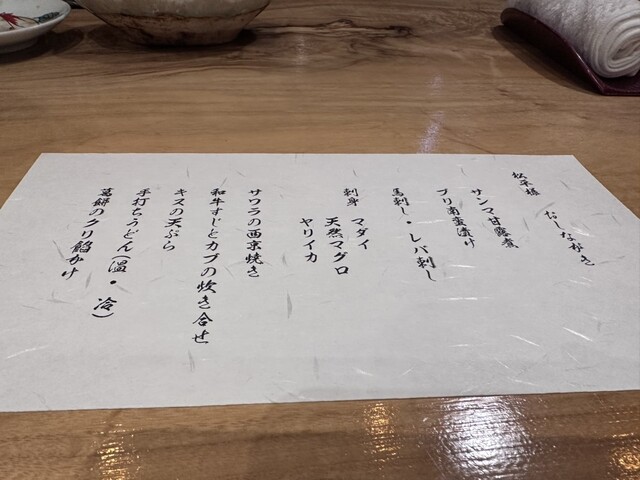 松平様
おしながき
サンマ甘露煮
ブリ南蛮漬け
馬刺し・レバ刺し
刺身 マダイ
天然マグロ
ヤリイカ
サワラの西京焼き
和牛すじとカブの炊き合せ
キスの天ぷら
手打ちうどん(温・冷)
葛餅のクリ餡かけ